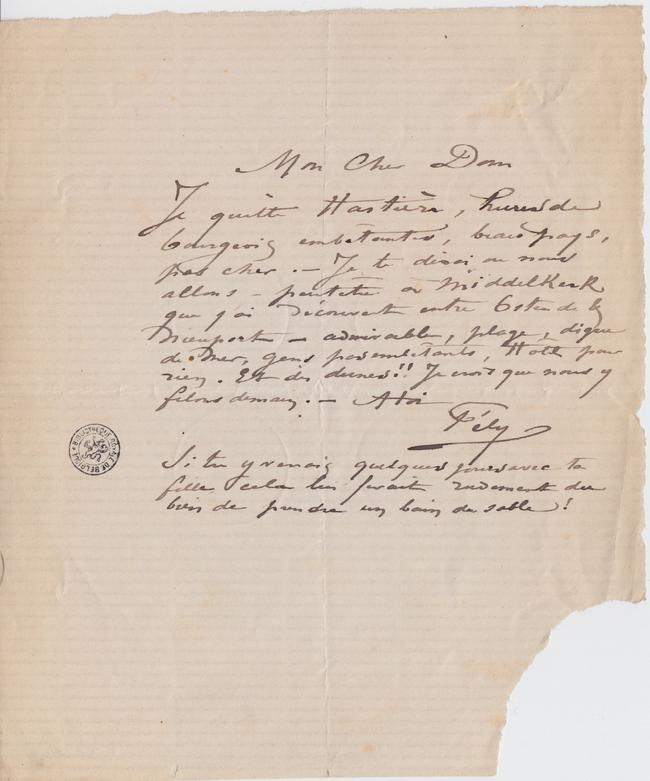 Mon Cher Dom
Je quitte Hastière, hures de
bourgeois embêtantes, beau pays,
pas cher. – Je te dirai où nous
allons – peutêtre à Middelkerk
que j'ai découvert entre Ostende &
Nieuport – admirable, plage, digue
de mer, gens pas embêtants, Hôtel pour
rien. Et des dunes!! Je crois que nous y
filons demain. – A toi
Fély
Si tu y venais quelques jours avec ta
fille, cela lui ferait rudement du
bien de prendre un bain de sable!
BIBLIOTHÈQUE ROYALE DE BELGIQUE